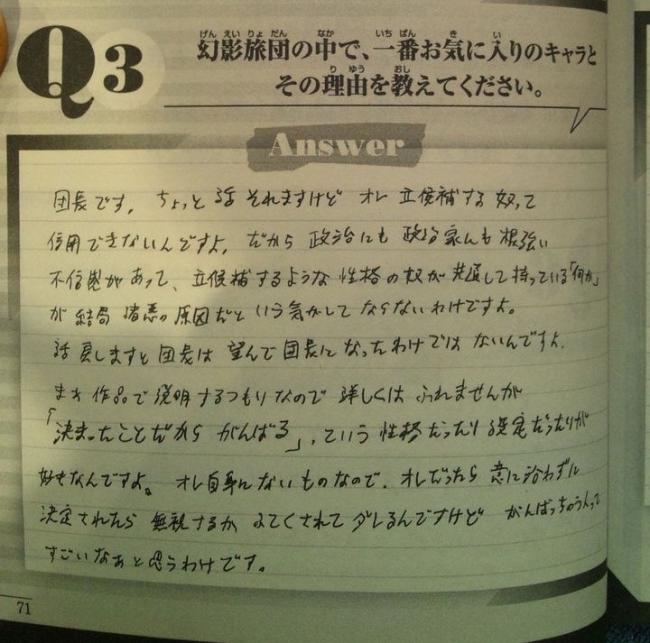 げん えい りょ だん なか いち ばん き い
幻影旅団の中で、一番お気に入りのキャラと
Q3
り ゆう おし
その理由を教えてください。
Answer
団長です。ちょっと話それますけど オレ 立候補する奴って
信用できないんですよ。だから 政治にも 政治家にも 根強い
不信感があって、立候補するような性格の奴が共通して持っている「何か」
が結局 諸悪の原因だという気がしてならないわけですよ。
話戻しますと団長は望んで団長になったわけではないんですよ。
まぁ作品で説明するつもりなので詳しくはふれませんが
「決まったことだからがんばる」、ていう性格だったり設定だったりが
好きなんですよ。オレ自身にないものなので。オレだったら意に沿わずに
決定されたら無視するかふてくされてダレるんですけど がんばっちゃう人って
すごいなぁと思うわけです。
71